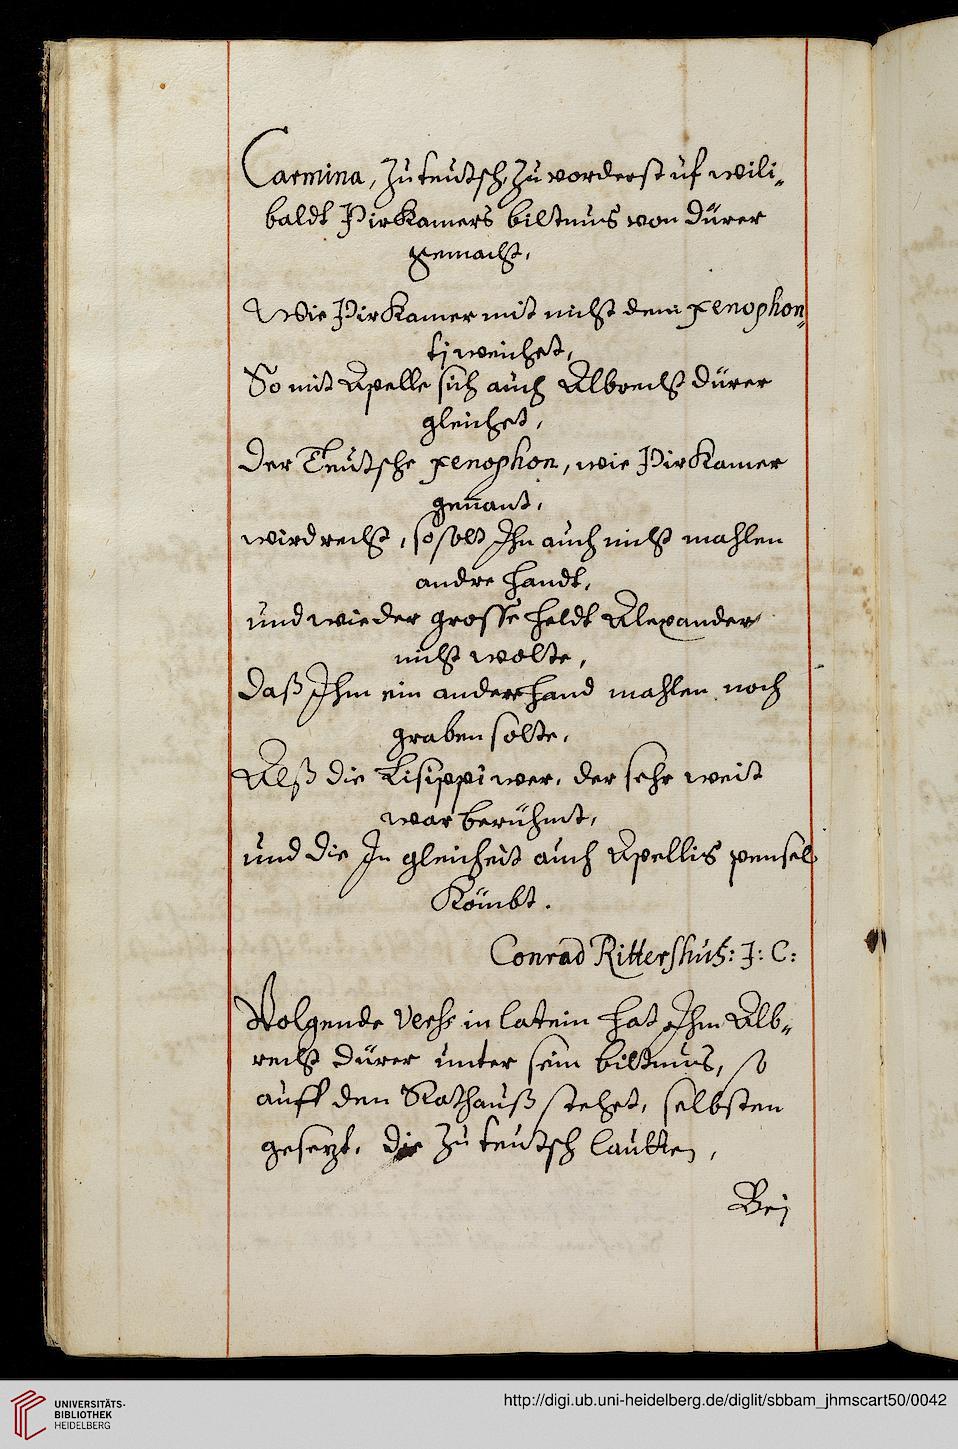 Carmina, Zu teutsch, Zu vorderst uf wili„
baldt Pirkamers biltnus von dürer
gemacht,
Wie Pirkamer mit nicht dem xenophon„
ti weichet,
So mit Apelle sich auch Albrecht dürer
gleichet,
der Teutsche xenophon, wie Pirkamer
genant,
wird recht, so solt Ihn auch nicht mahlen
andre handt,
und wie der grosse heldt Alexander
nicht wolte,
daß Ihm ein andere hand mahlen noch
graben solte,
Alß die Lisippi wer, der sehr weit
war berühmt,
und die In gleicheit auch Apellis pensel
Kömbt.
Conrad Rittershuß: J: C:
Volgende Verß in latein hat Ihm Alb„
recht dürer unter sein biltnus, so
auff den Rathauß stehet, selbsten
gesezt, die Zu teutsch lautten,
Bei
UNIVERSITÄTS-
BIBLIOTHEK
HEIDELBERG
http://digi.ub.uni-heidelberg.de/diglit/sbbam_jhmscart50/0042